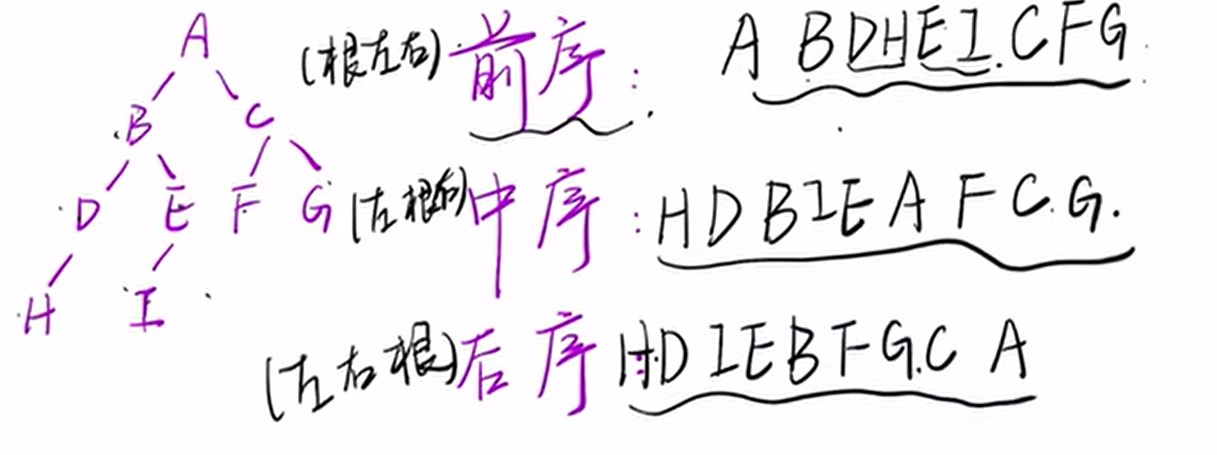 A
B C
D E F G
H I
(根左右) 前序: A BDHEI.CFG
(左根右) 中序: HDBIEAFC.G.
(左右根) 后序: HDIEBFG.C A